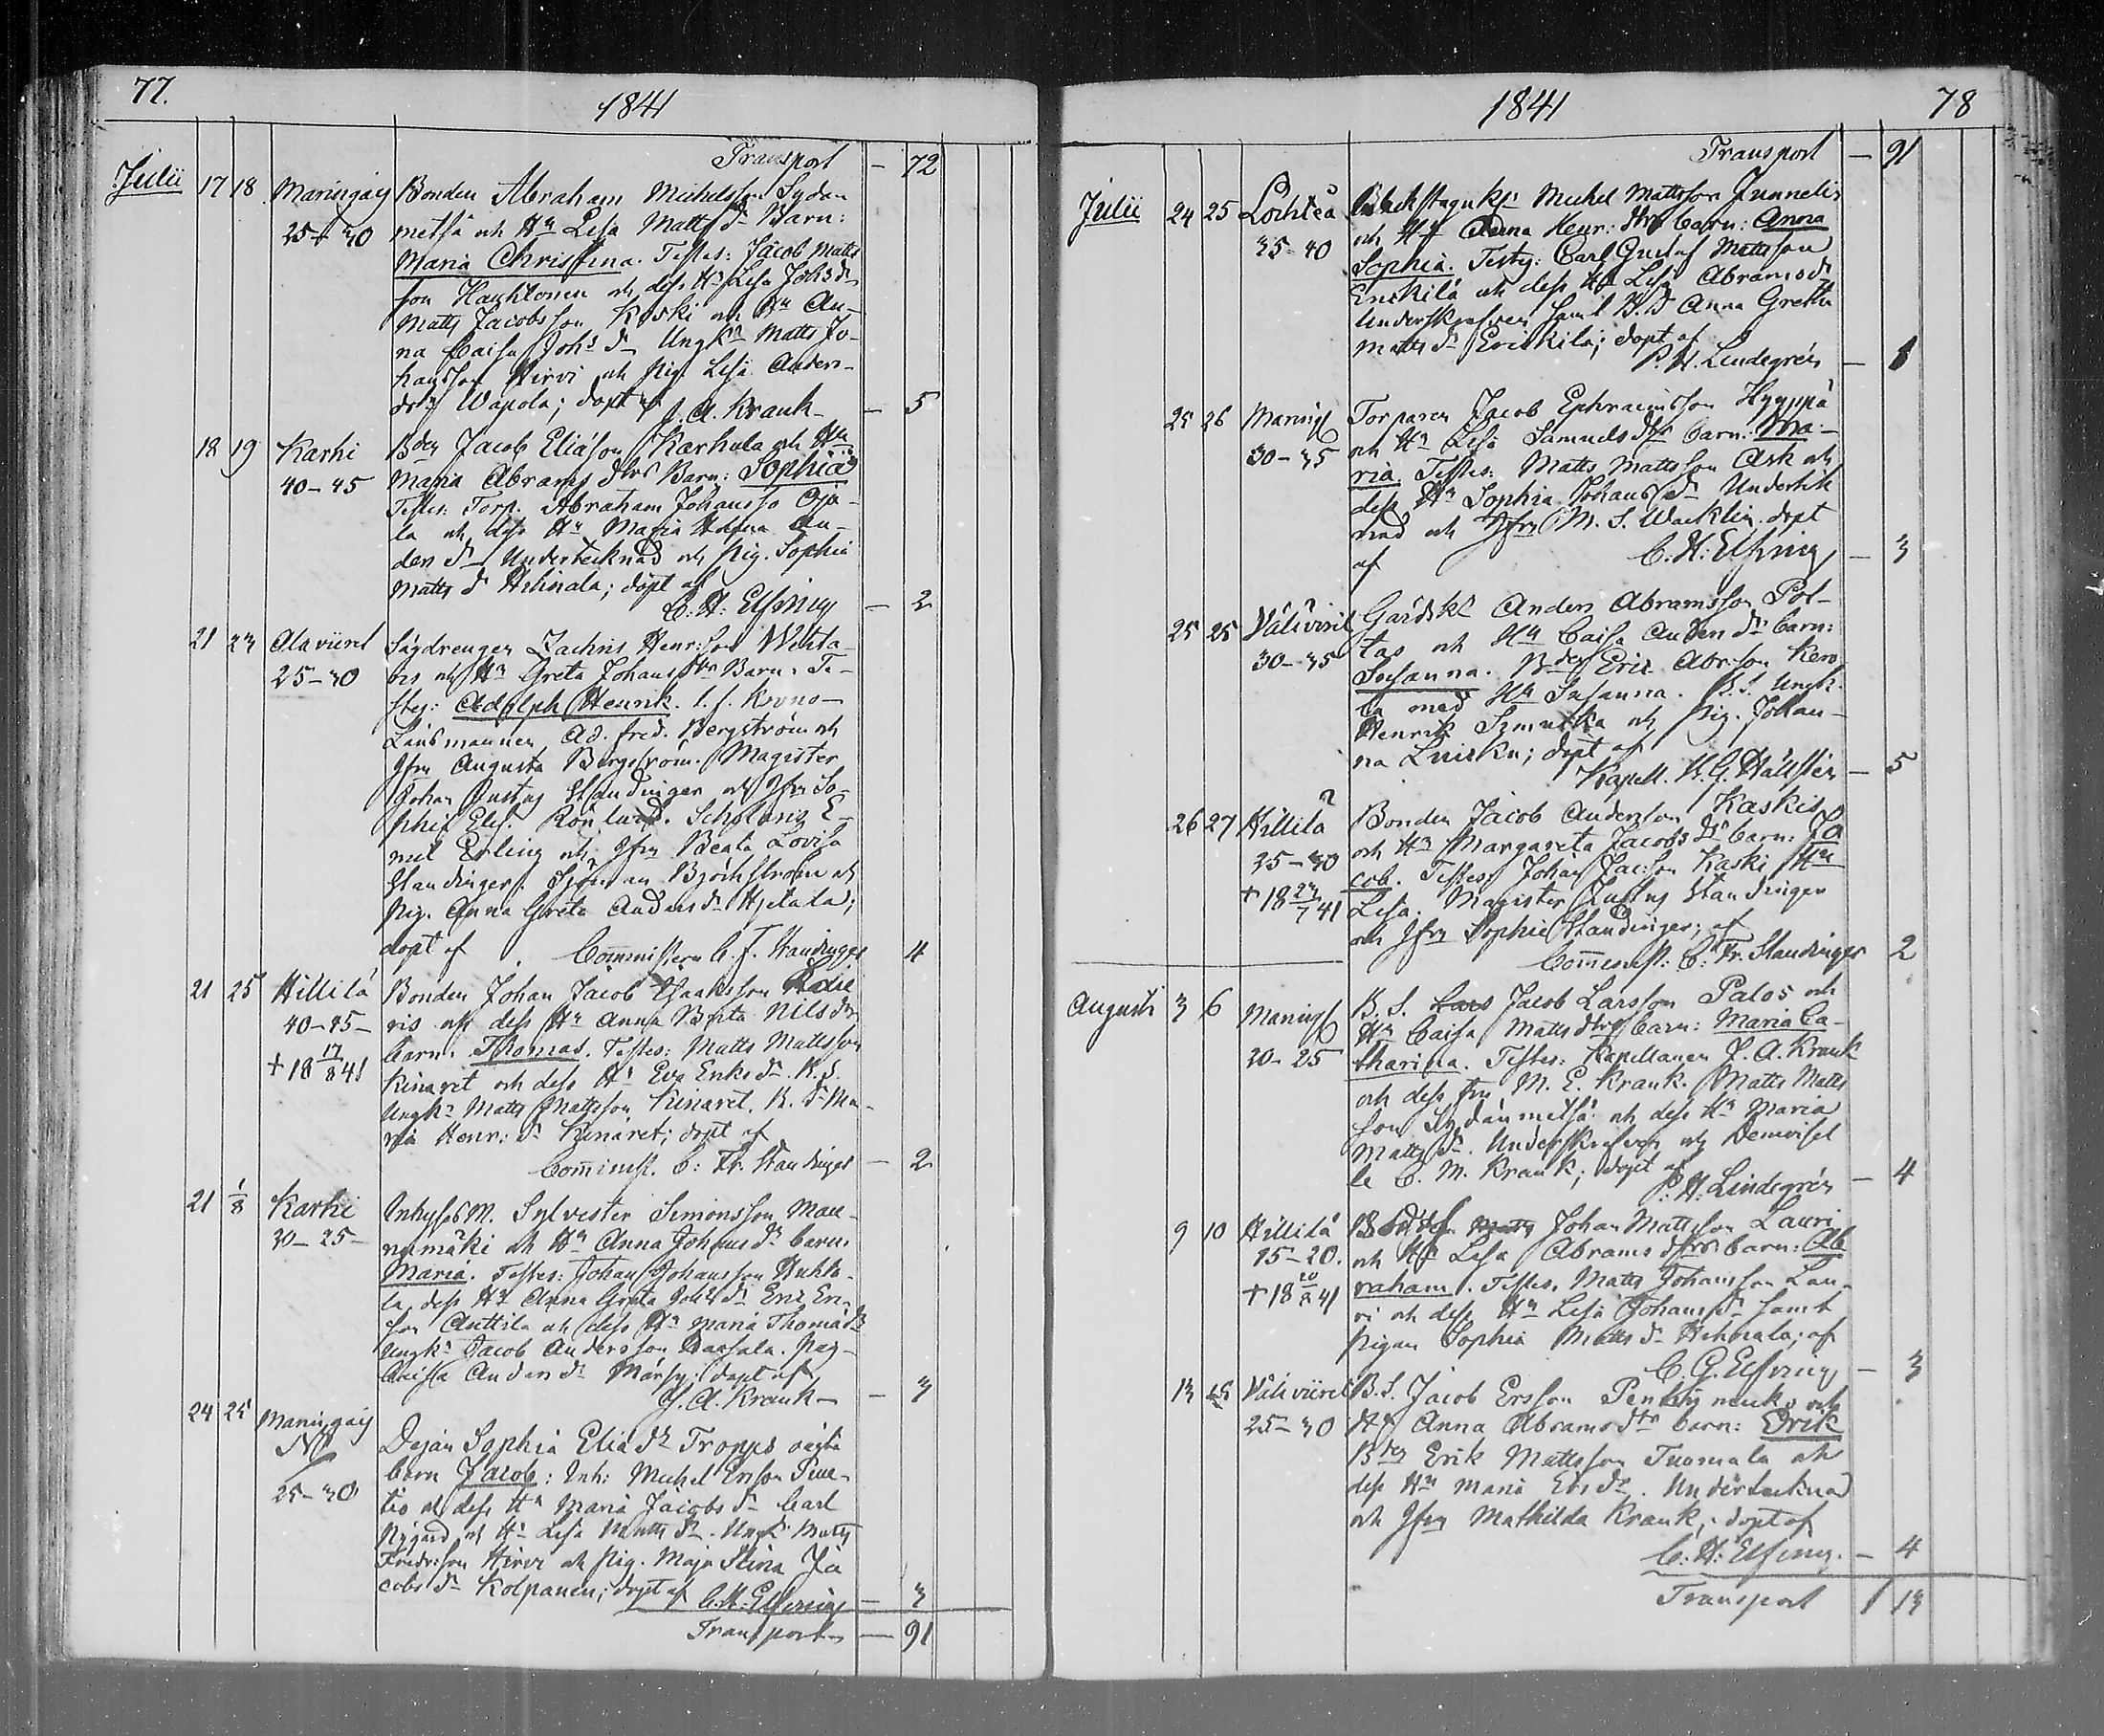 77.
1841
Transport — 72
Julii 17 18 Maningaig Bonden Abraham Michelsson Sydän
25 + 30 metsä och Hu Lisa Matts dr Barn:
Maria Christina. Testes: Jacob Matts
son Hauktonen och dess Hu Lisa Johs dr
Matts Jacobsson Koski och Hu An-
na Caisa Johs dr Ungkn Matts Jo-
hansson Hirvi och pig. Lisa Anders-
dotr Wapola; döpt af J. A. Krank — 5
18 19 Karhi Bden Jacob Eliasson Karhula och Hu
40-45 Maria Abrams dtrs Barn: Sophia
Testes: Torp. Abraham Johansso Oja-
la och dess Hu Maria An-
ders dr Undertecknad och Pig. Sophia
Matts dr Hihnala; döpt af
C. H: Elfving — 2
21 23 Alaviirret Sågdrengen Zachris Henr:son
25-30 och Hu Greta Johans dtr Barn: Te-
stes: Adolph Henrik. t. f. Krono-
Länsmannen Ad. Fred. Bergström och
Jfru Augusta Bergström. Magister
Johan Justus Standinger och Jfru So-
phie Elis. Rönlund. Scholaris E-
mil Erling och Jfru Beata Lovisa
Standinger. Sjöman Björkström och
Pig. Anna Greta Anders dr Hjetala;
döpt af Comministern C. F. Standinger 4
21 25 Hillilä Bonden Johan Jacob Isaaksson
40-45 - ris och dess Hu Anna Brita Nils dtr
+ 18 17/8 41 barn: Thomas. Testes: Matts Mattsson
Kinaret och dess Hu Eva Eriks dr. B. S.
Ungkn Matts Mattsson Kinaret. B. dr Ma-
ria Henr: dr Kinaret; döpt af
Comminist. C: Fr. Standinger — 2
21 1/8 Karhi Inhyses M. Sylvester Simonsson Mau-
30-35 - numäki och Hu Anna Johans dr barn:
Maria. Testes: Johan Johansson Huhta-
la, dess Hu Anna Greta Johs dr Eric Eri-
son Anttila och dess Hu Maria Thomas dr
Ungkn Jacob Andersson Pig-
Caisa Anders dr Märsy; döpt af
J. A. Krank — 3
24 25 Maningaig
N
25-30 Dejan Sophia Elia dr Tropps oägta
barn Jacob: Inh: Michel Ersson Puu-
tio och dess Hu Maria Jacobs dr Carl
Nygård och Hu Lisa Matts dr. Ungk. Matts
Fredr:son Hirvi och Pig. Maja Stina Ja
cobs dr Kolpanen; döpt af C. H: Elfving — 3
Transport — 91
1841
78
Transport — 91
Julii 24 25 Lochteå Michel Mattsson Junnelis
35-40 och Hu Anna Henr: dtrs barn: Anna
Sophia. Testes: Carl Gustaf Mattsson
Eriskilä och dess Hu Lisa Abrams dr
Underskrefven samt B. D Anna Gretha
Matts dr Eriskilä; döpt af
P. H. Lindegrén —
25 26 Maning Torparen Jacob Ephraimsson Hyyppä
30-35 och Hu Lisa Samuels dtr barn: Ma-
ria. Testes: Matts Mattsson Ask och
dess Hu Sophia Johans dr Underteck
nad och Jfru M. S. Wacklin. döpt
af C. H: Elfving — 3
25 25 Väliviiret Gårdsk. Anders Abramsson Pol-
30-35 tas och Hu Caisa Anders dr barn:
Susanna. Bden Eric Abr:son Kero
la med Hu Susanna. B. S. Ungk.
Henrik och Pig. Johan-
na; döpt af
Kapell. K. G. Hällsten — 5
26 27 Hillilä Bonden Jacob Andersson Kaskis
35-40 och Hu Margareta Jacobs dr barn: Ja
+ 18 27/7 41 cob. Testes: Johan Jac:son Kaski Hu
Lisa. Magister Justus Standinger
och Jfru Sophie Standinger; af
Comminist: C: Fr. Standinger 2
Augusti 3 6 Maning B. S. Lars Jacob Larsson Palos och
20-25 Hu Caisa Matts dtrs barn: Maria Ca-
tharina. Testes: Kapellanen J. A. Krank
och dess fru M. E. Krank. Matts Matts
son Sydänmetsä och dess Hu Maria
Matts dr. Underskrefven och Demoisel
le C. M. Krank; döpt af
P. H. Lindegrén — 4
9 10 Hillilä Matts Johan Mattsson Lauri
15-20. och Hu Lisa Abrams dtrs barn: Ab
+ 18 20/8 41 raham. Testes. Matts Johansson Lau-
ri och dess Hu Lisa Johans dr samt
pigan Sophia Matts dr Hihnala; af
C. G. Elfving — 3
13 15 Väliviiret B. S. Jacob Ersson och
25-30 Hu Anna Abrams dtr barn: Erik
Bden Erik Mattsson Tuomala och
dess Hu Maria Ers dr. Undertecknad
och Jfru Mathilda Krank; döpt af
C: H: Elfving. — 4
Transport 1 13